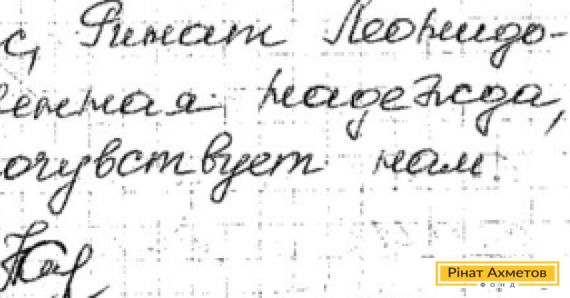 с, Ринат Леонидо-
енная надежда,
очувствует нам
Рінат Ахметов
ФОНД